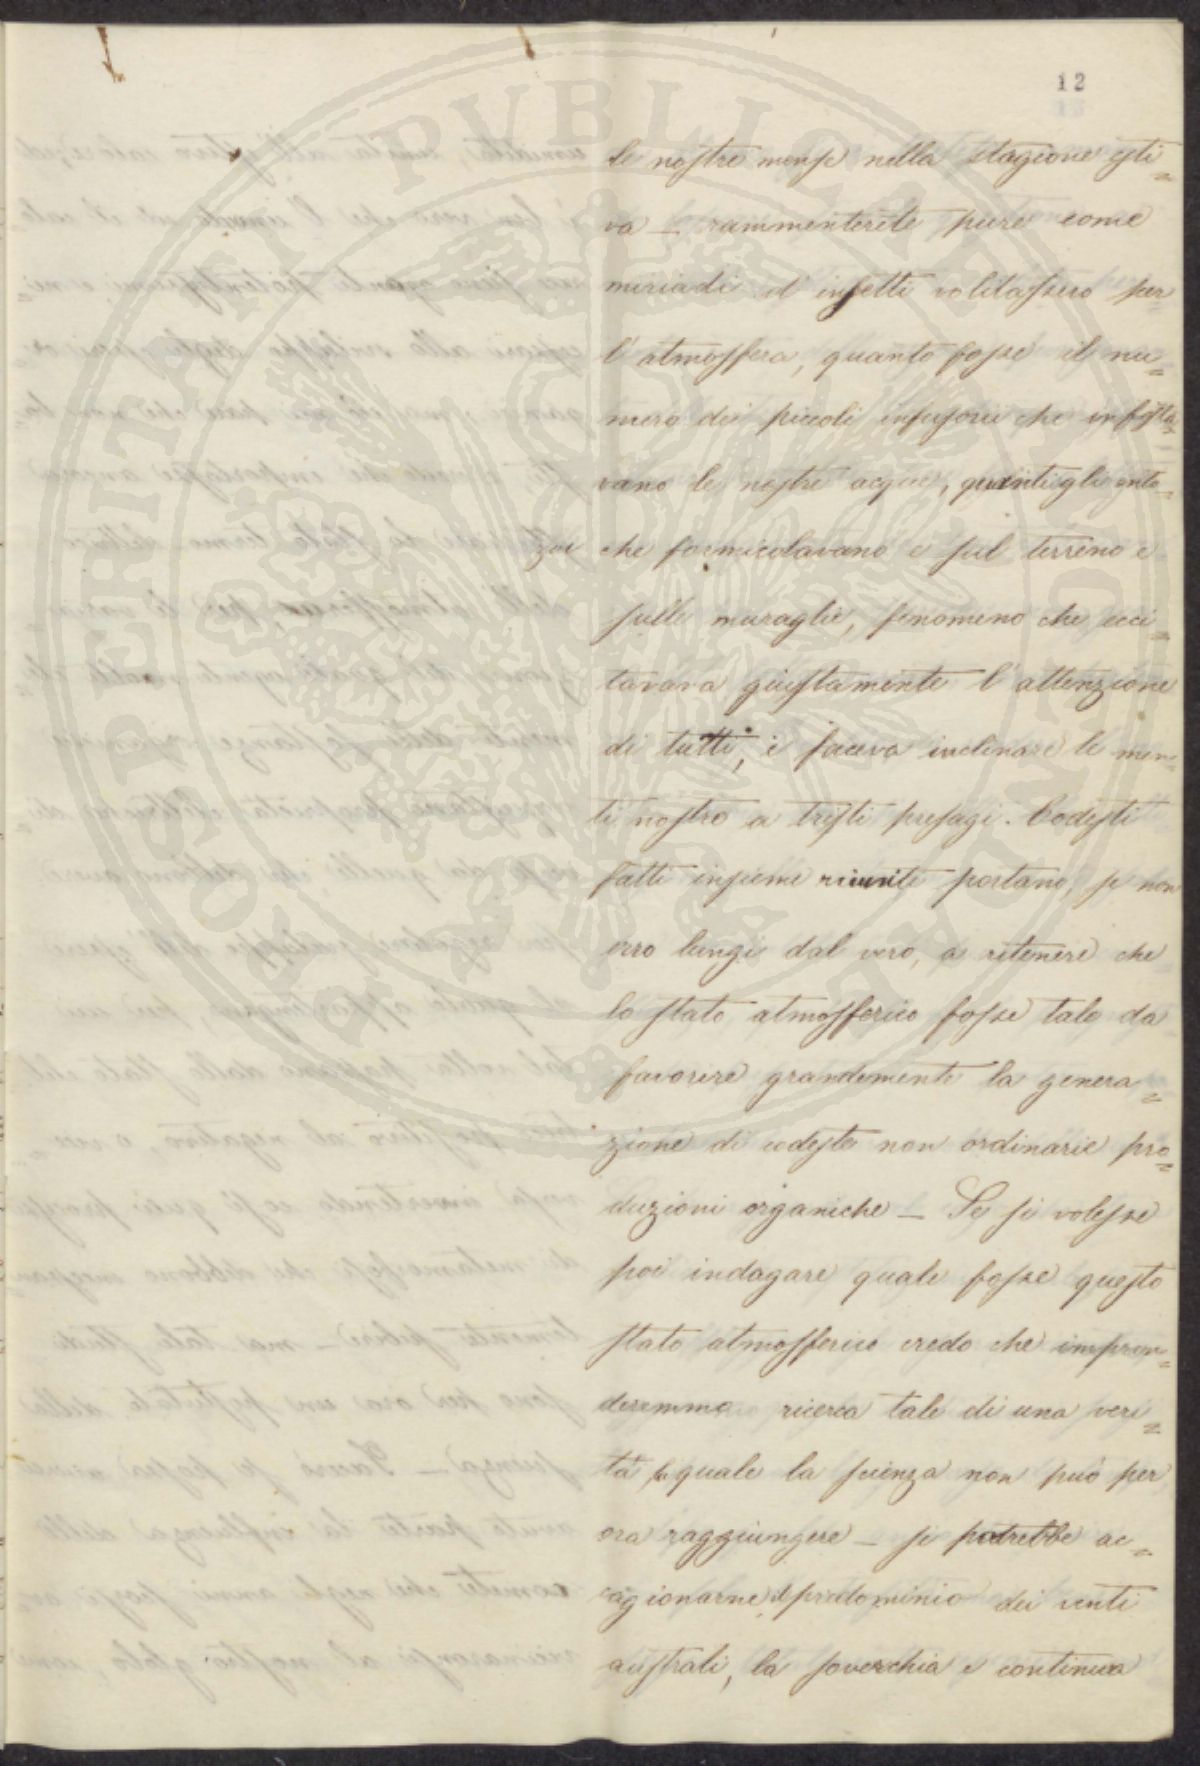 12
le nostre mense nella stagione esti=
va _ rammenterete pure come
miriadi d' insetti volitassero per
l' atmosfera, quanto fosse il nu=
mero dei piccoli infusori che infesta=
vano le nostre acque, quanti gli ento=
zoi che formicolavano e sul terreno e
sulle muraglie, fenomeno che ecci=
tavava giustamente l' attenzione
di tutti, e faceva inclinare le men=
ti nostre a tristi presagi. Codesti
fatti insieme riuniti portano, se non
ero lungi dal vero, a ritenere che
lo stato atmosferico fosse tale da
favorire grandemente la genera=
zione di codeste non ordinarie pro=
duzioni organiche _ Se si volesse
poi indagare quale fosse questo
stato atmosferico credo che impren=
deremmo ricerca tale di una veri=
tà quale la scienza non può per
ora raggiungere _ si potrebbe ac=
cagionarne il predominio dei venti
australi, la soverchia e continua
PROSPERITATI PUBLICAE AUGENDAE